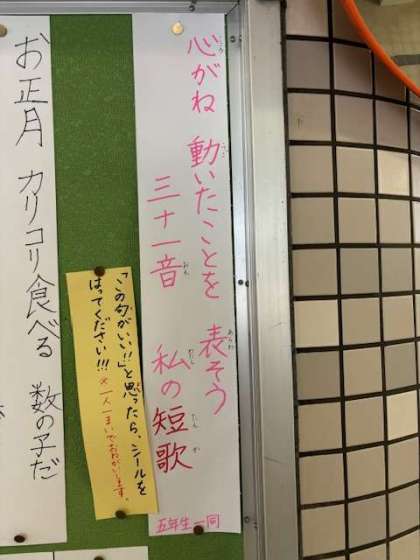 心がね 動いたことを 表そう
三十一音 私の短歌
五年生一同
「この句がいい!!」と思ったら、シールを
はってください!!!※一人一まいでおねがいします。
お正月 カリコリ食べる 数の子だ